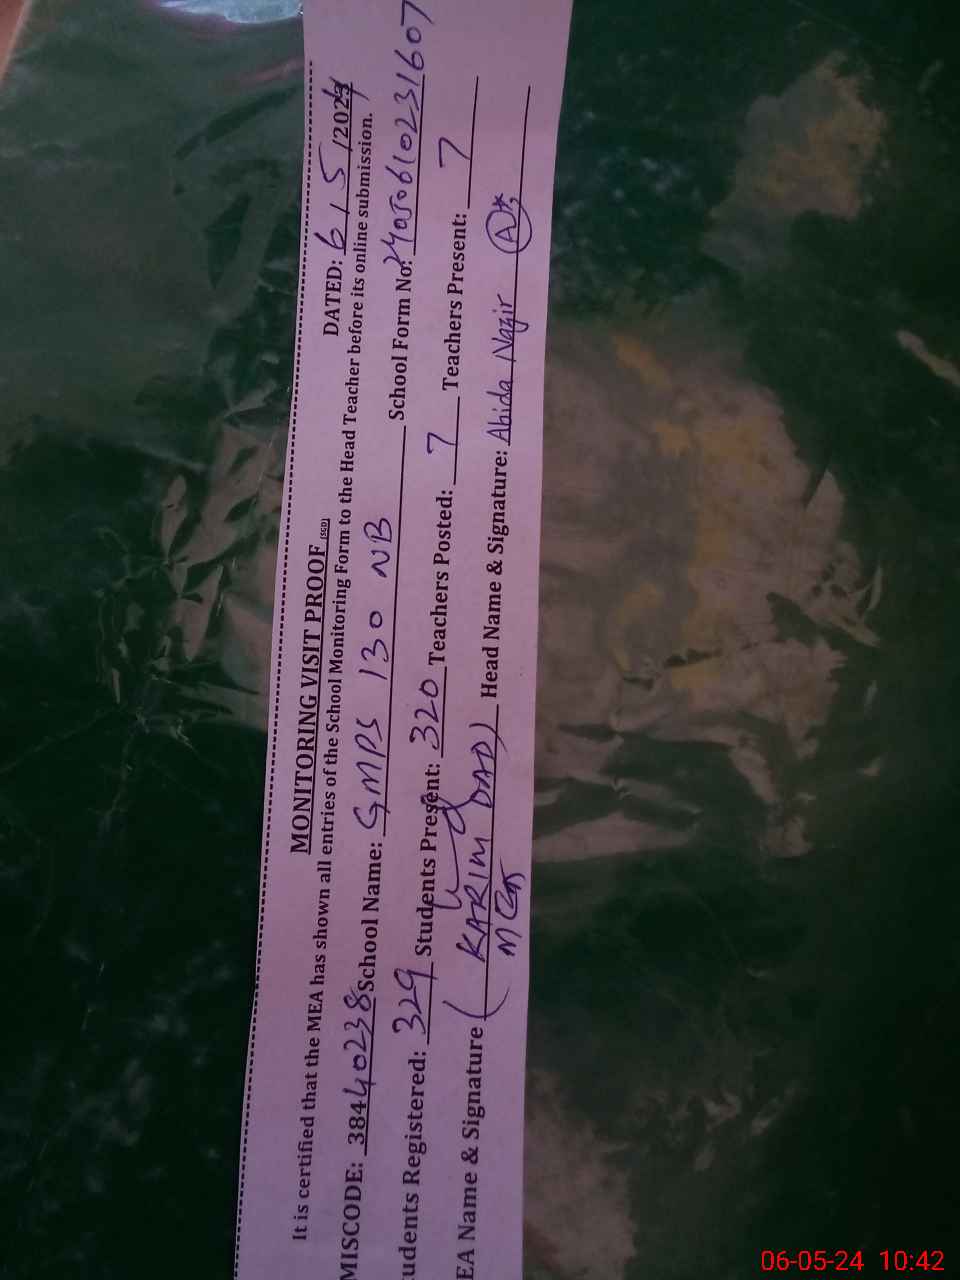 MONITORING VISIT PROOF (SGD) DATED: 6/5/2024
It is certified that the MEA has shown all entries of the School Monitoring Form to the Head Teacher before its online submission.
MISCODE: 38440238 School Name: GMPS 130 NB School Form No: 24050610231607
udents Registered: 329 Students Present: 320 Teachers Posted: 7 Teachers Present: 7
EA Name & Signature (KARIM DAD) Head Name & Signature: Abida Nazir
06-05-24 10:42